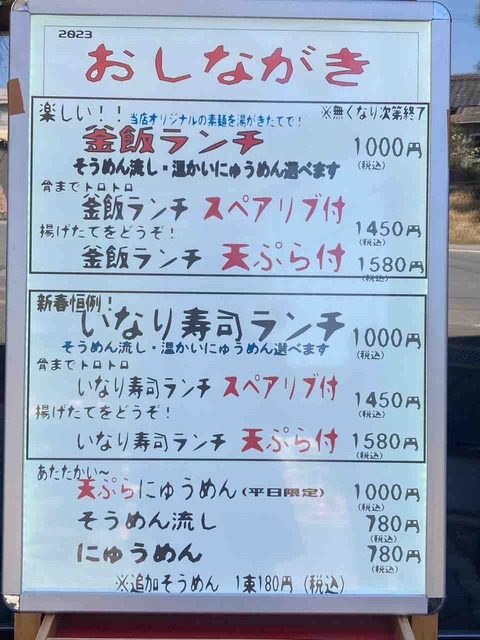 2023
おしながき
楽しい！！
※無くなり次第終了
当店オリジナルの素麺を湯がきたてで！
釜飯ランチ 1000円
(税込)
そうめん流し・温かいにゅうめん選べます
骨までトロトロ
釜飯ランチ スペアリブ付 1450円
(税込)
揚げたてをどうぞ！
釜飯ランチ 天ぷら付 1580円
(税込)
新春恒例！
いなり寿司ランチ 1000円
(税込)
そうめん流し・温かいにゅうめん選べます
骨までトロトロ
いなり寿司ランチ スペアリブ付 1450円
(税込)
揚げたてをどうぞ！
いなり寿司ランチ 天ぷら付 1580円
(税込)
あたたかい〜
天ぷらにゅうめん(平日限定) 1000円
(税込)
そうめん流し 780円
(税込)
にゅうめん 780円
(税込)
※追加そうめん 1束180円（税込）